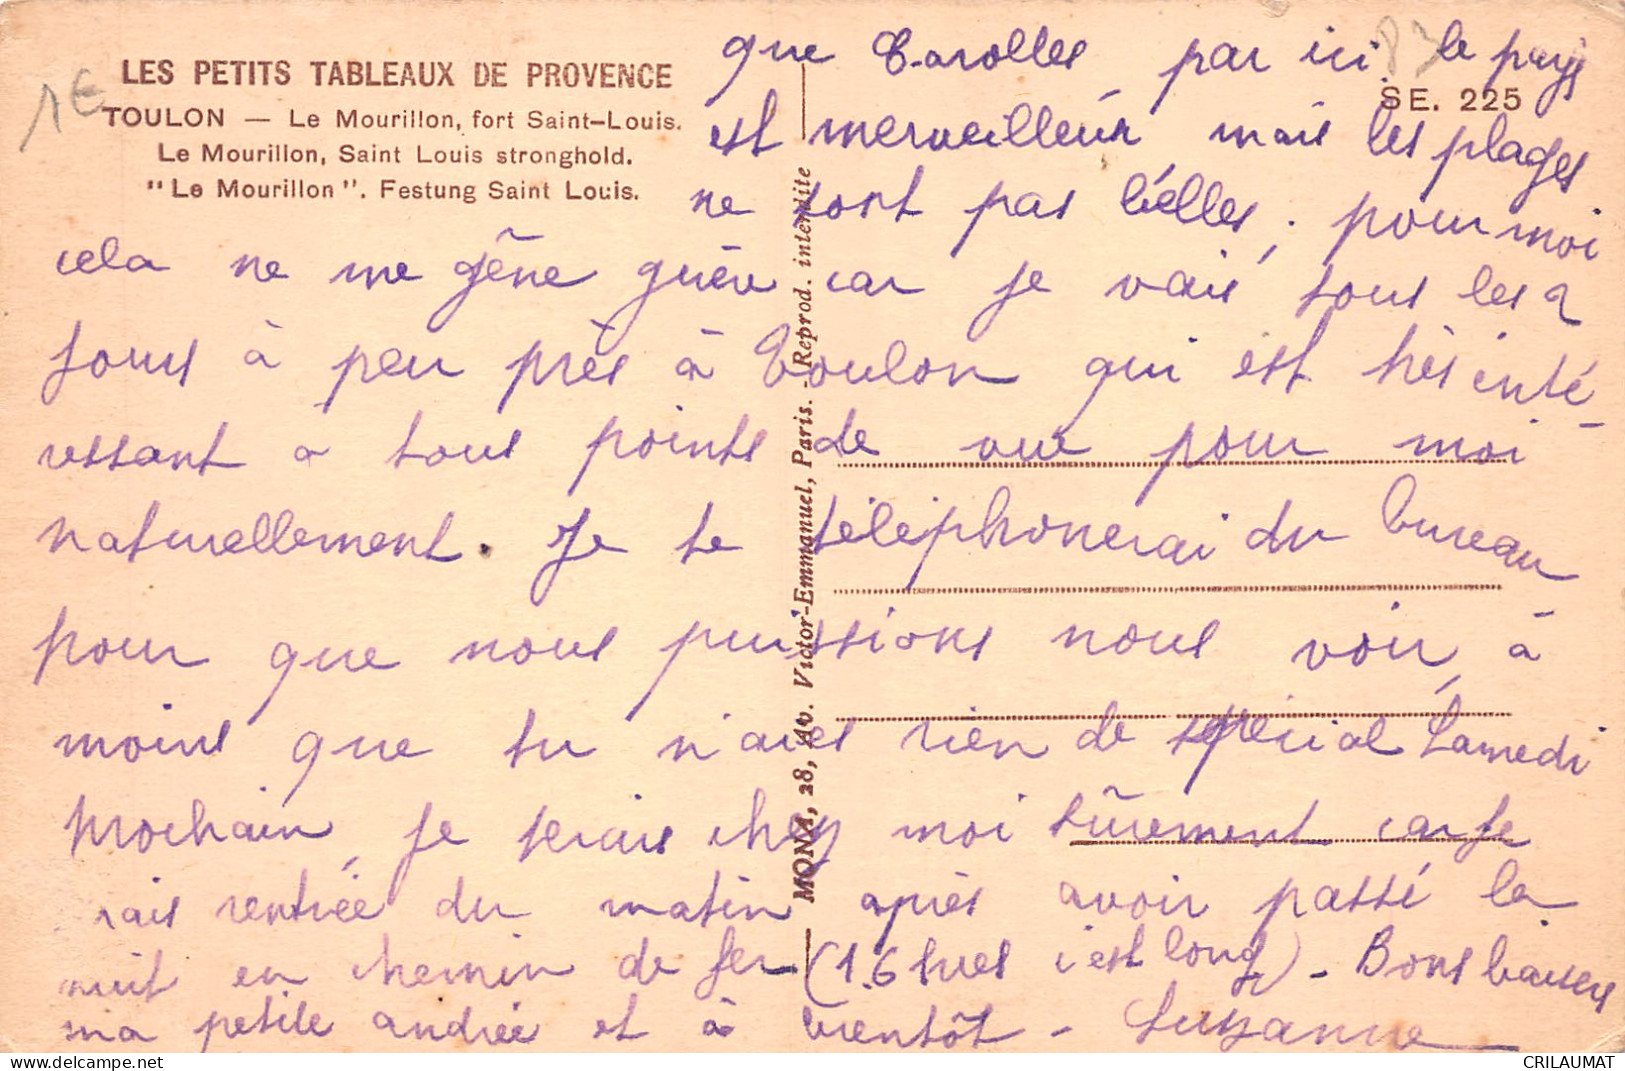 1€
LES PETITS TABLEAUX DE PROVENCE
TOULON — Le Mourillon, fort Saint-Louis.
Le Mourillon, Saint Louis stronghold.
"Le Mourillon". Festung Saint Louis.
SE. 225
83
que Carolles par ici le pays
est merveilleux mais les plages
ne sont pas belles, pour moi
cela ne me gêne guère car je vais tous les 2
jours à peu près à Toulon qui est très inté-
ressant à tous points de vue pour moi
naturellement. Je te téléphonerai du bureau
pour que nous puissions nous voir, à
moins que tu n'aies rien de spécial Samedi
prochain, je serais chez moi sûrement car je
rentrée du matin après avoir passé la
nuit en chemin de fer (16 hres c'est long) - Bons baisers
ma petite andrée et à bientôt - Suzanne
MONA, 28, Av. Victor-Emmanuel, Paris. - Reprod. interdite
CRILAUMAT